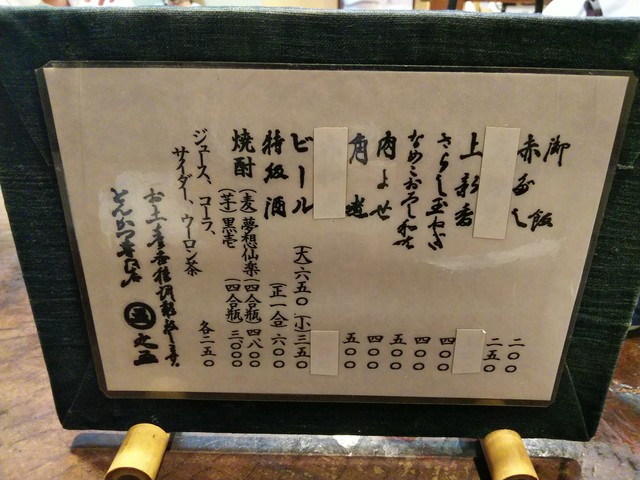 御飯 二〇〇
赤だし 二五〇
上新香 四〇〇
さらし玉ねぎ 四〇〇
なめこおろし和せ 五〇〇
肉よせ 四〇〇
角煮 五〇〇
ビール (大)六五〇 (小)三五〇
特級酒 (正一合)六〇〇
焼酎 (麦)夢想仙楽(四合瓶)四八〇〇
(芋)黒壱 (四合瓶)三〇〇〇
ジュース、コーラ、
サイダー、ウーロン茶 各二五〇
とんかつ専門店